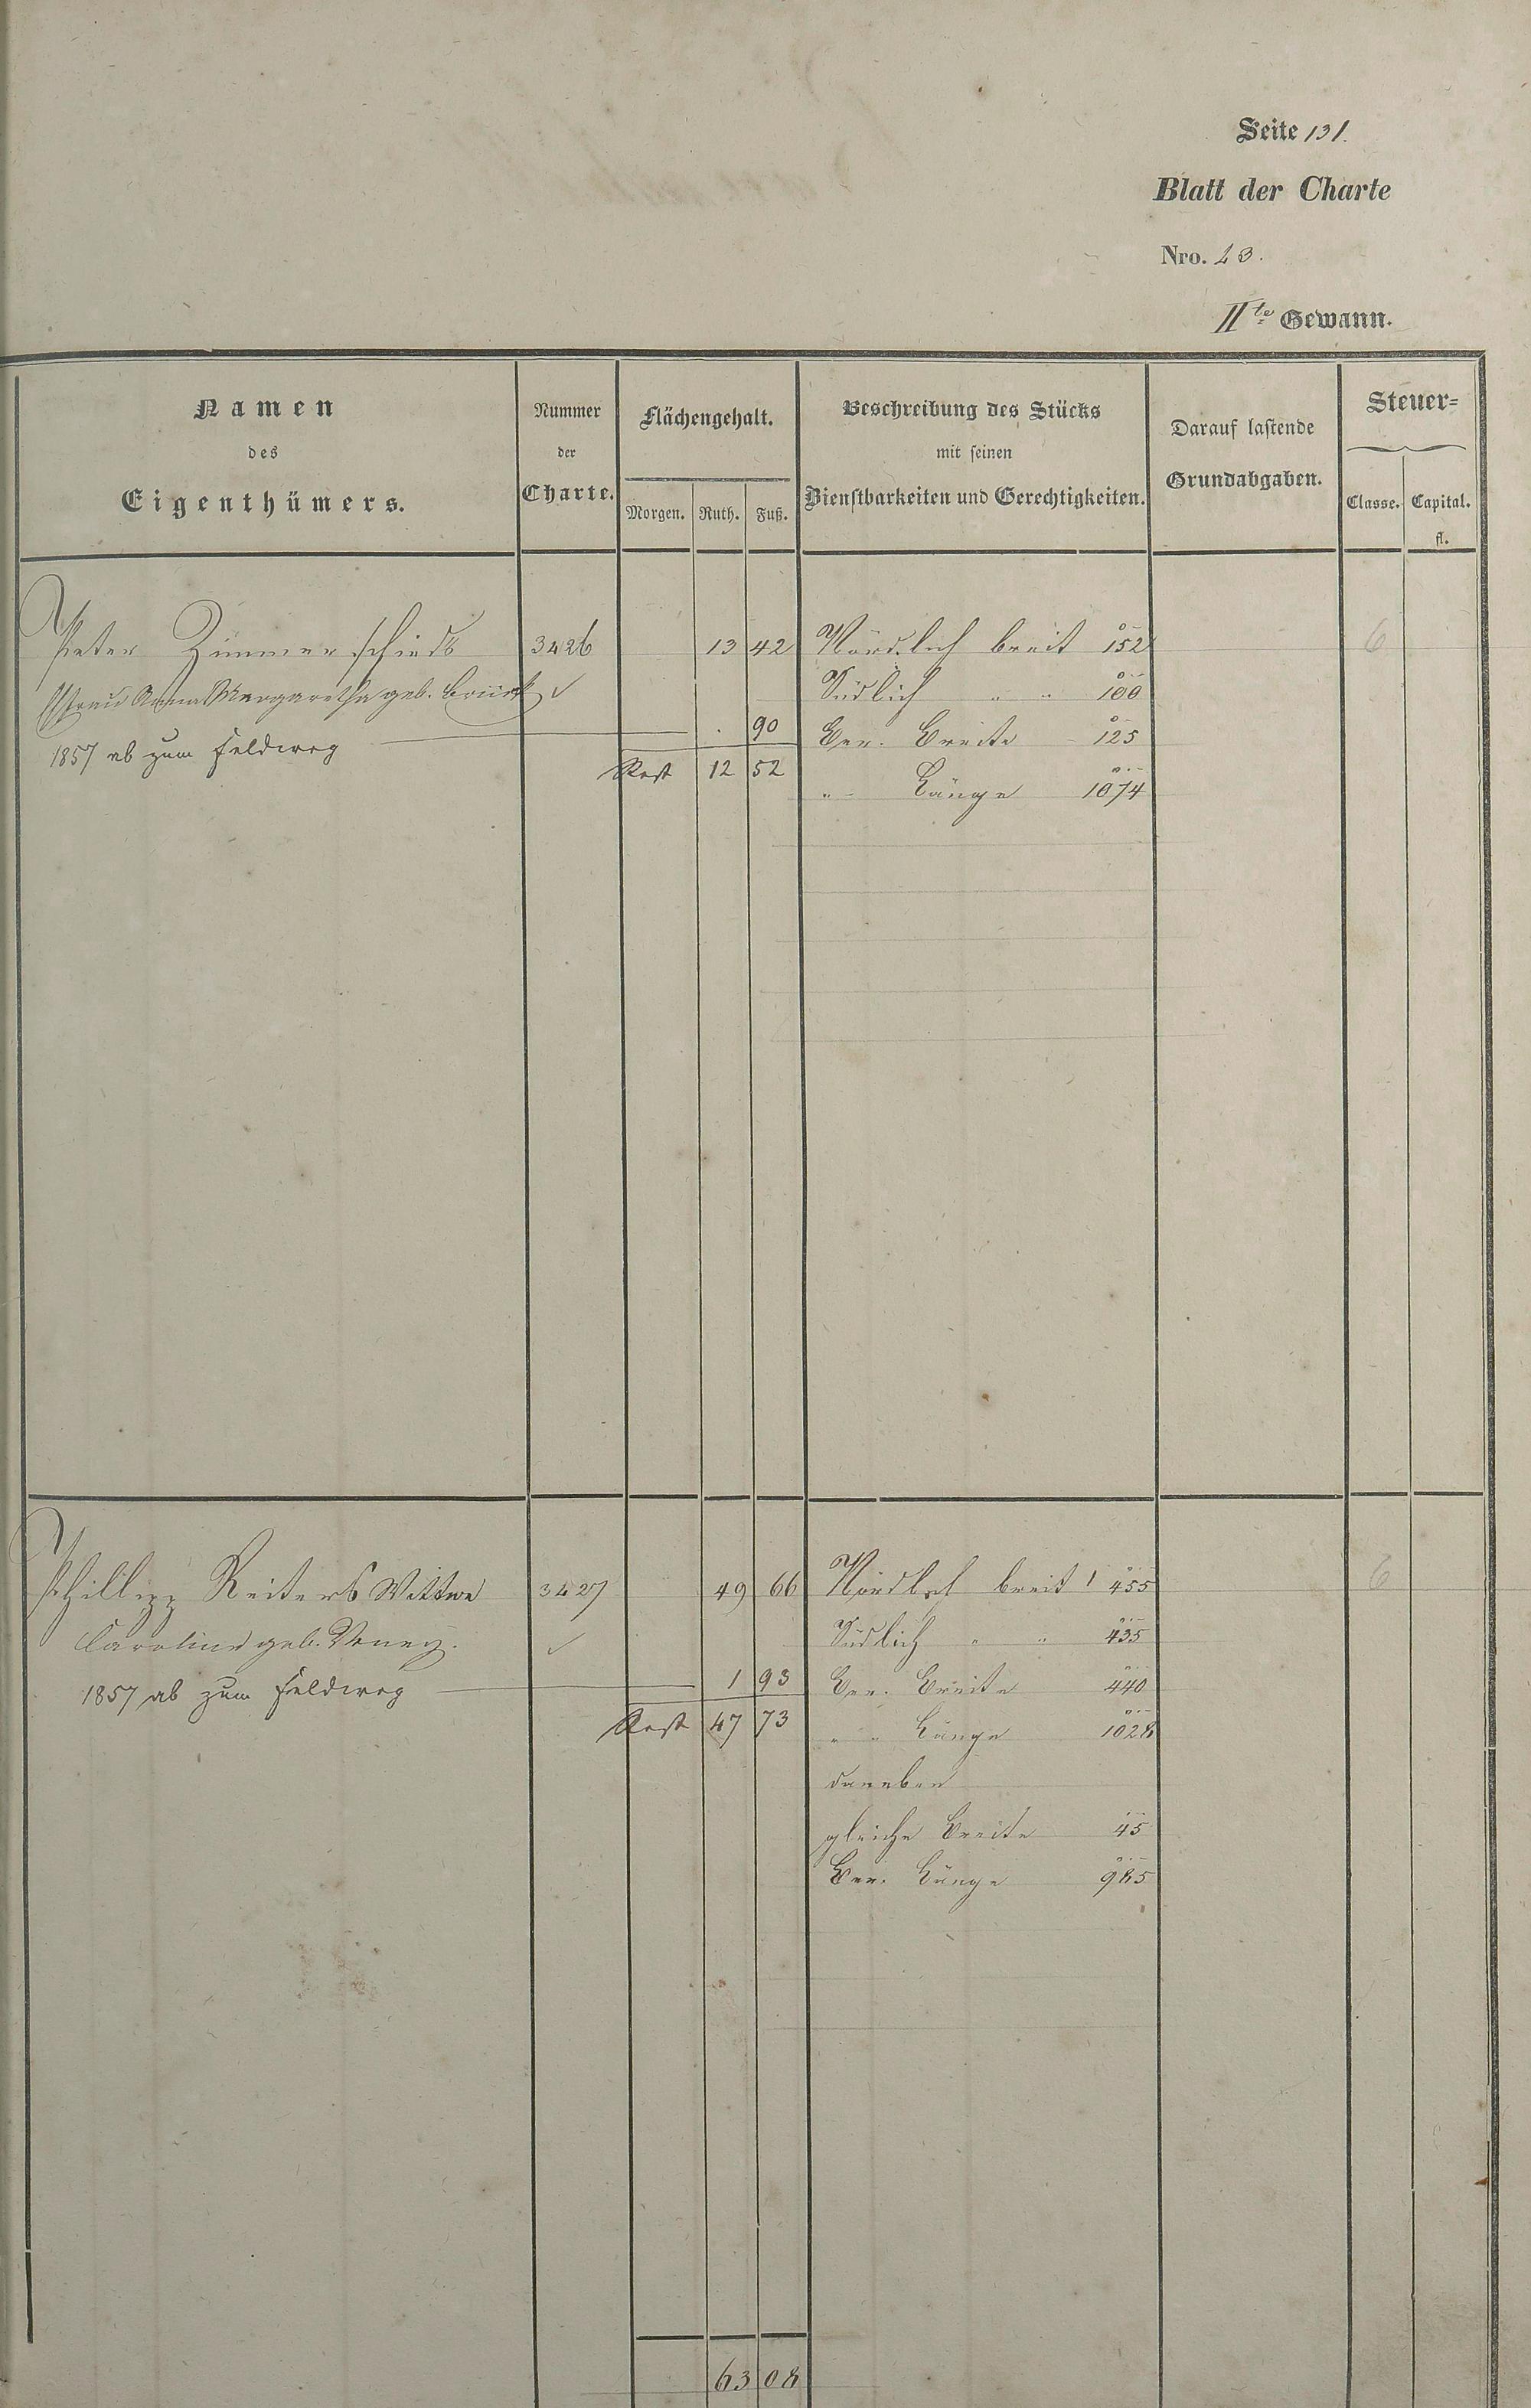 Seite 131.
Blatt der Charte
Nro. 23.
IIte Gewann.
Namen
des
Eigenthümers.
Nummer
der
Charte.
Flächengehalt.
Morgen. Ruth. Fuß.
Beschreibung des Stücks
mit seinen
Dienstbarkeiten und Gerechtigkeiten.
Darauf lastende
Grundabgaben.
Steuer-
Classe. Capital.
fl.
Peter Zimmerschieds 3426 13 42 Nördlich breit 152 6
Frau Anna Margaretha geb. Brück ✓ Südlich " " 100
1857 ab zum Feldweg . 90 Ber. Breite 125
Rest 12 52 " Länge 1074
Phillipp Reiters Wittwe 3427 49 66 Nördlich breit 455 6
Caroline geb. ✓ Südlich " " 435
1857 ab zum Feldweg 1 93 Ber. Breite 440
Rest 47 73 " " Länge 1028
daneben
gleiche Breite 45
Ber. Länge 985
63 08